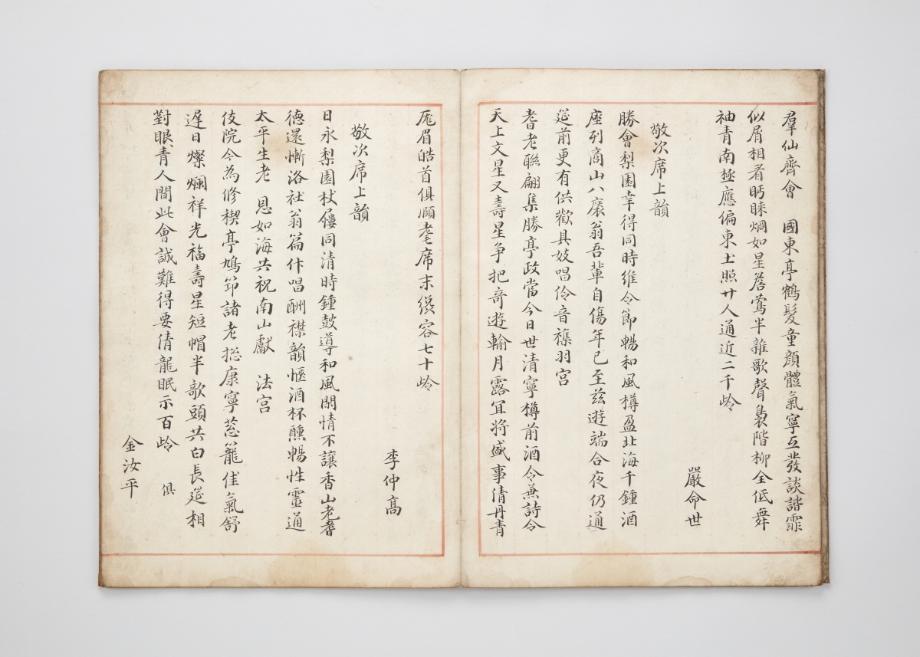 羣仙齊會 國東亭鶴髮童顔體氣寧互發談諧霏
似屑相看眄睞烱如星簷鶯半雜歌聲裊階柳全低舞
袖青南極應偏東土照廿人通近二千岭
嚴命世
敬次席上韻
勝會梨園幸得同時維令節暢和風樽盈北海千鍾酒
座列商山八衮翁吾輩自傷年已至玆遊端合夜仍通
筵前更有供歡具妓唱伶音雜羽宮
耆老聯翩集勝亭政當今日世清寧樽前酒令兼詩令
天上文星又壽星爭把奇遊輸月露冝將盛事倩丹青
厖眉皓首俱順耄席末猶容七十岭
李仲高
敬次席上韻
日永梨園杖屨同清時鍾鼓導和風閑情不讓香山老耆
德還慚洛社翁篇什唱酬襟韻愜酒杯醺暢性靈通
太平生老 恩如海共祝南山獻 法宮
伎院今為修稧亭鳩笻諸老揔康寧葱蘢佳氣舒
遲日燦爛祥光福壽星短帽半歌頭共白長筵相
對眼青人間此會誠難得要倩龍眠示百岭 俱
金汝平